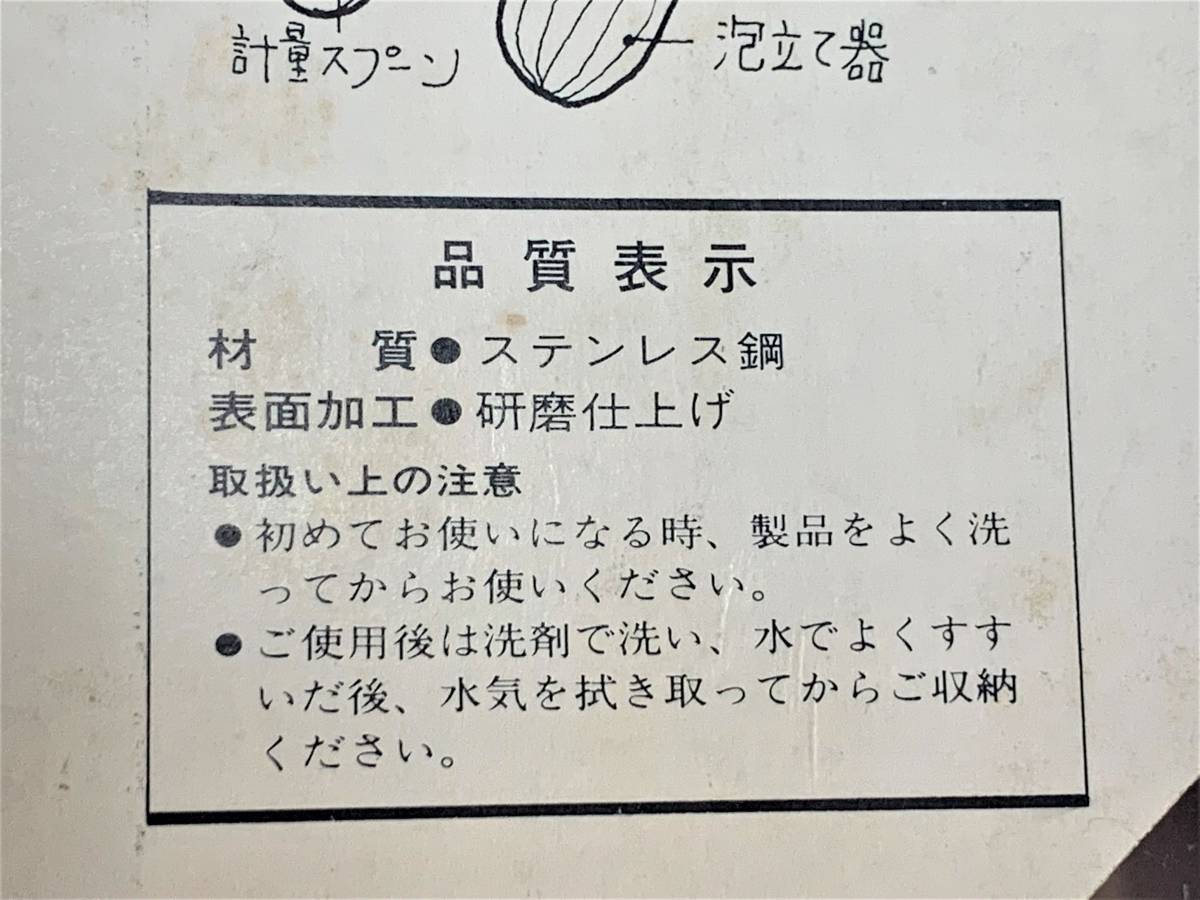 計量スプーン
泡立て器
品質表示
材　　質●ステンレス鋼
表面加工●研磨仕上げ
取扱い上の注意
●初めてお使いになる時、製品をよく洗
ってからお使いください。
●ご使用後は洗剤で洗い、水でよくすす
いだ後、水気を拭き取ってからご収納
ください。